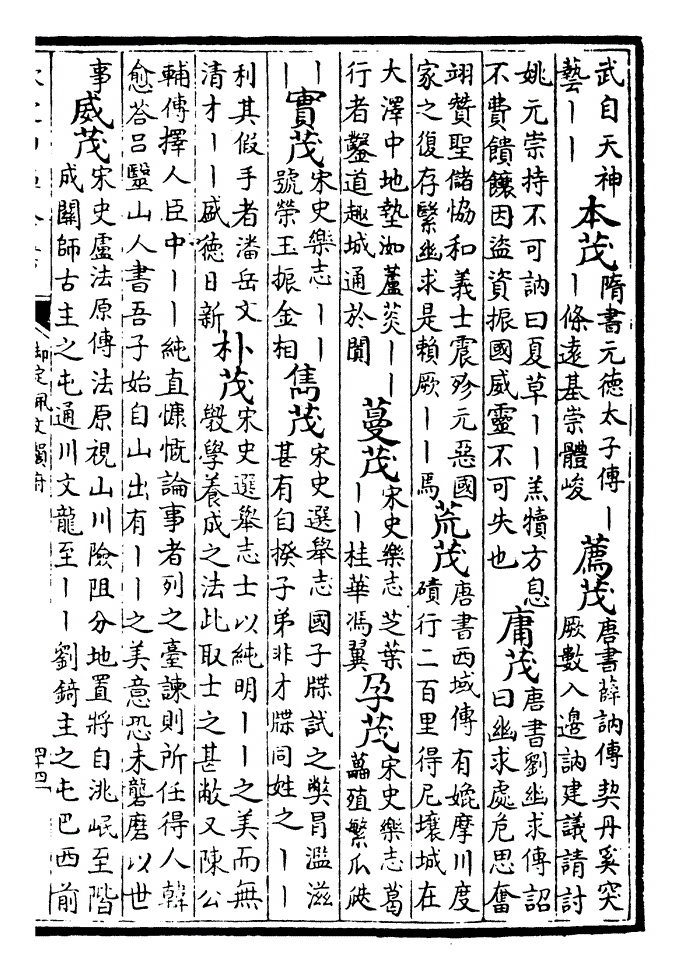 武自天神
藝丨丨
本茂
隋書元德太子傳丨
丨條遠基崇體峻
薦茂
唐書薛訥傳契丹奚突
厥數入邊訥建議請討
姚元崇持不可訥曰夏草丨丨羔犢方息
不費饋饟因盜資振國威靈不可失也
庸茂
唐書劉幽求傳詔
曰幽求處危思奮
翊贊聖儲協和義士震殄元惡國
家之復存繄幽求是賴厥丨丨焉
荒茂
唐書西域傳有媲摩川度
磧行二百里得尼壤城在
大澤中地墊洳蘆荻丨丨
行者鑿道趣城通於闐
蔓茂
宋史樂志芝葉
丨丨桂華馮翼
孕茂
宋史樂志葛
藟殖繁瓜瓞
丨
丨
實茂
宋史樂志丨丨
號榮玉振金相
雋茂
宋史選舉志國子牒試之弊冒濫滋
甚有自揆子弟非才牒同姓之丨丨
利其假手者潘岳文
清才丨丨盛德日新
朴茂
宋史選舉志士以純明丨丨之美而無
斆學養成之法此取士之甚敝又陳公
輔傳擇人臣中丨丨純直慷慨論事者列之臺諫則所任得人韓
愈答呂毉山人書吾子始自山出有丨丨之美意恐未礱磨以世
事
威茂
宋史盧法原傳法原視山川險阻分地置將自洮岷至階
成關師古主之屯通川文龍至丨丨劉錡主之屯巴西前
御定佩文韻府
四十四